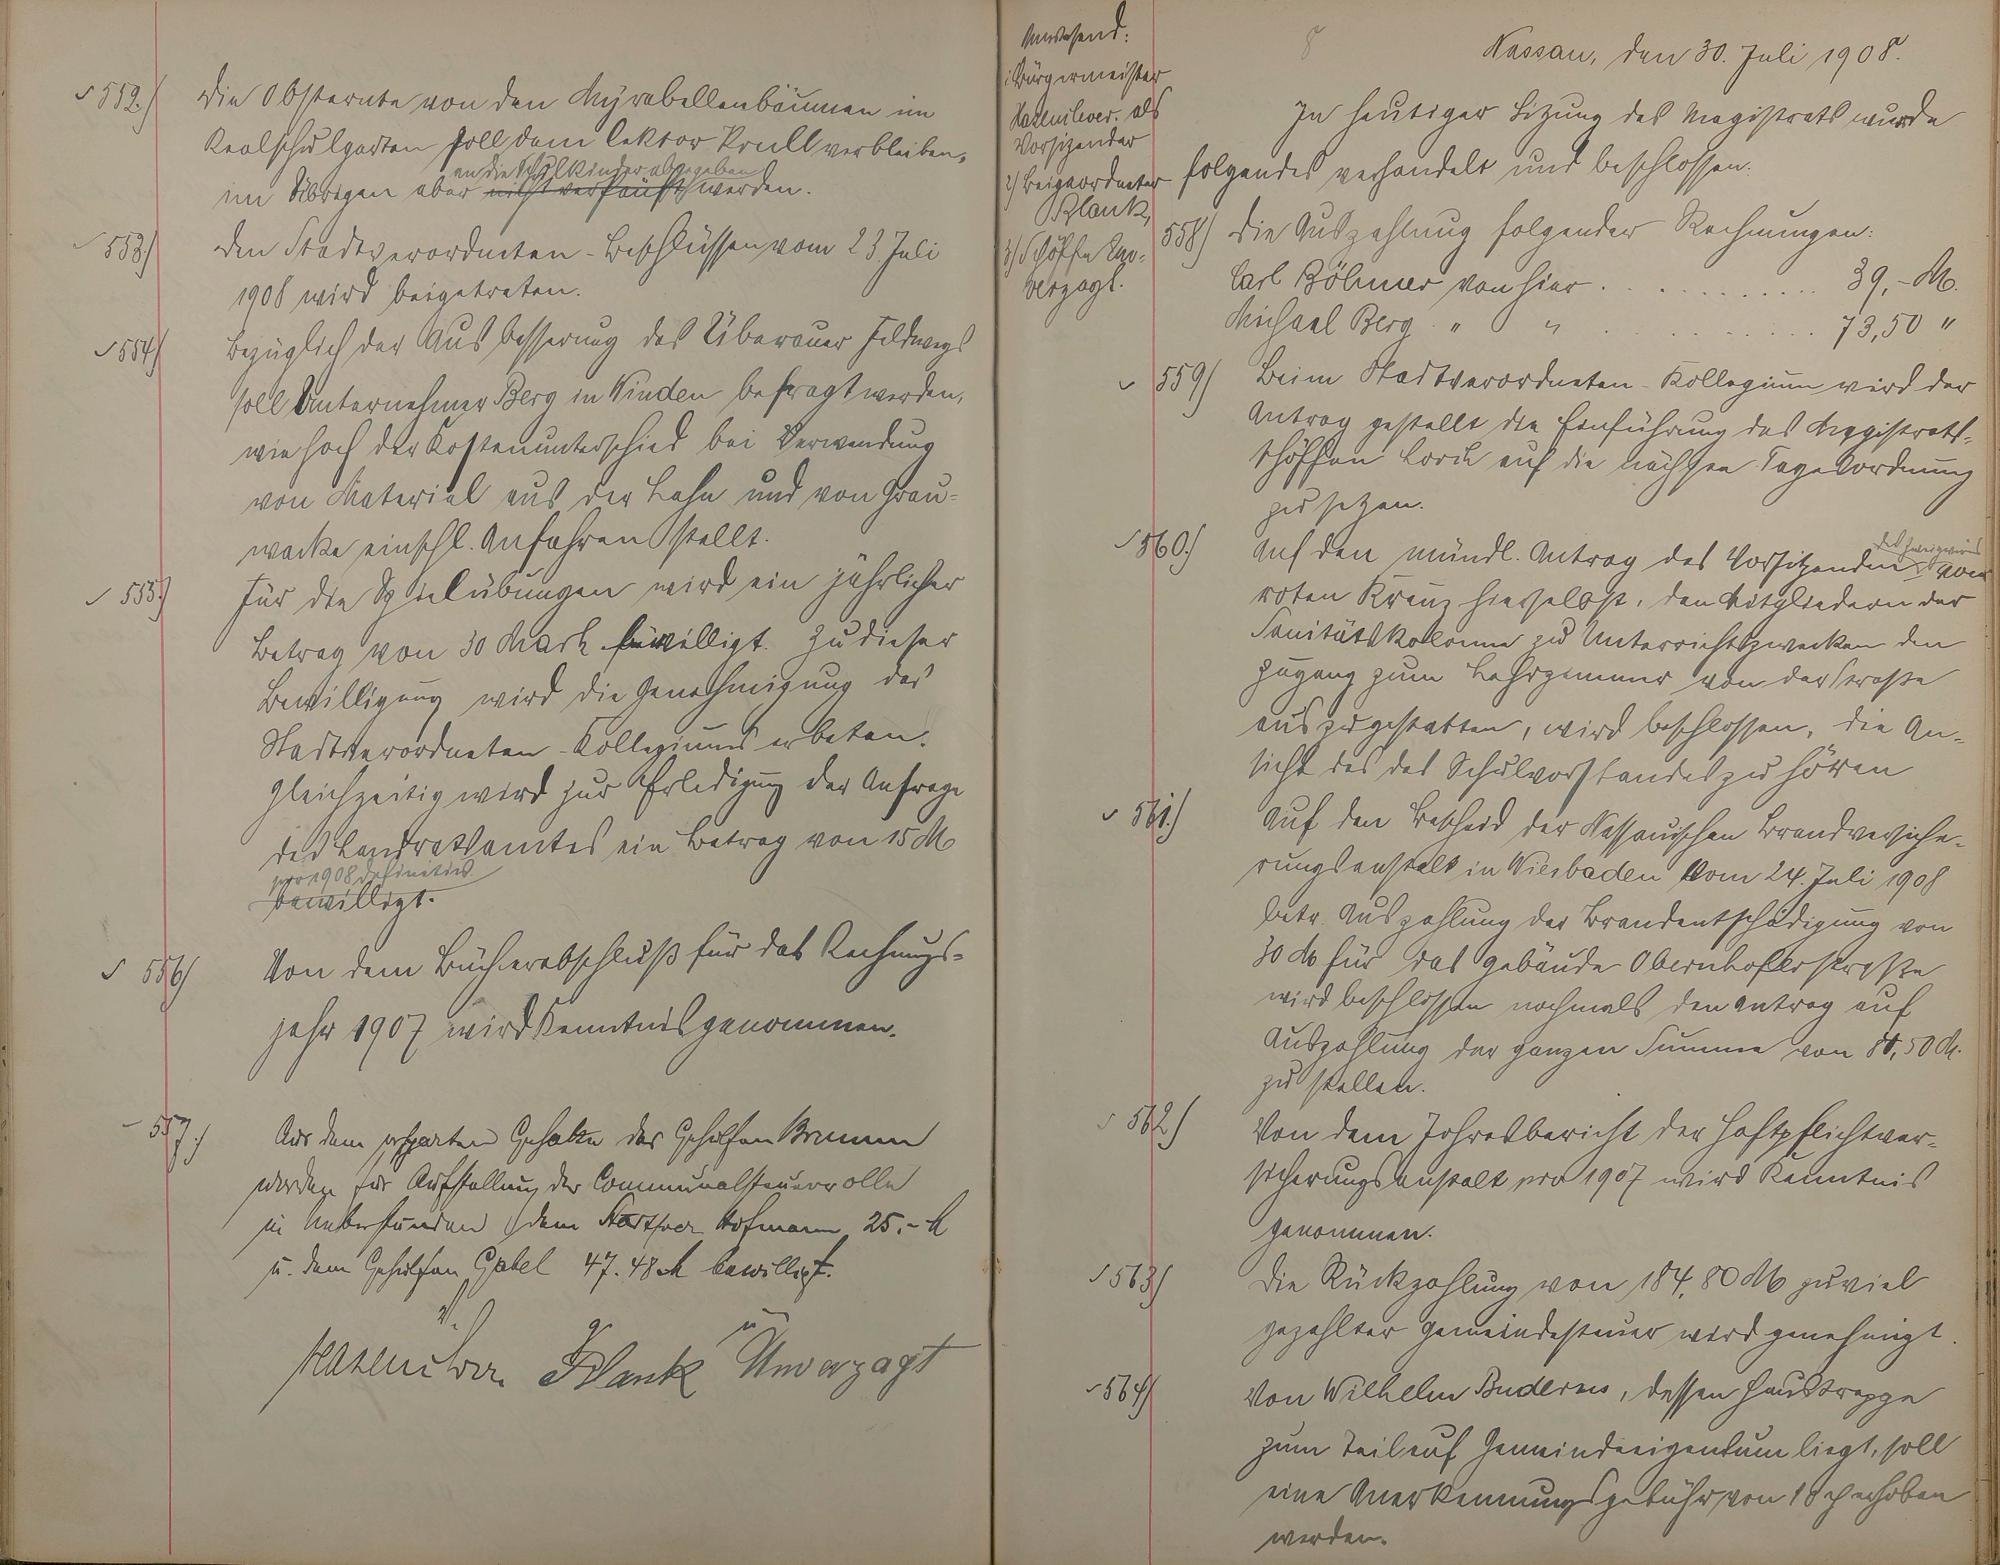 552.) Die Obsternte von den Myrabellenbäumen im
Realschulgarten soll dem Rektor Krull verbleiben,
an die Schulkinder abgegeben
im Übrigen aber nicht verkauft werden.
553.) Den Stadtverordneten-Beschlüssen vom 23. Juli
1908 wird beigetreten.
554.) Bezüglich der Ausbesserung des Überauer Feldwegs
soll Unternehmer Berg in Winden befragt werden,
wie hoch der Kostenunterschied bei Verwendung
von Material aus der Lahn und von Grau-
wacke einschl. Anfahren stellt.
555.) Für die Spielübungen wird ein jährlicher
Betrag von 30 Mark bewilligt. Zu dieser
Bewilligung wird die Genehmigung des
Stadtverordneten-Kollegiums erbeten.
Gleichzeitig wird zur Erledigung der Anfrage
des Landratsamtes ein Betrag von 15 M
pro 1908 definitiv
bewilligt.
556.) Von dem Bücherabschluß für das Rechnungs-
jahr 1907 wird Kenntnis genommen.
557.) Aus dem ersparten Gehalte des Gehülfen Bremm
werden für Aufstellung der Communalsteuerrolle
in Ueberstunden dem Hofmann 25.- M
u. dem Gehülfen Gabel 47.48 M bewilligt.
Hasenclever. Plank Unverzagt
Anwesend:
1) Bürgermeister
Hasenclever als
Vorsizender
2) Beigeordneter
Plank,
3) Schöffe Un-
verzagt.
8
Nassau, den 30. Juli 1908.
In heutiger Sizung des Magistrats wurde
folgendes verhandelt und beschlossen:
558) Die Auszahlung folgender Rechnungen:
Carl Böhmer von hier . . . . . . . . . . 39,- M.
Michael Berg " " . . . . . . . . . . 73,50 "
559) Beim Stadtverordneten-Kollegium wird der
Antrag gestellt die Einführung des Magistrats-
schöffen Lorch auf die nächste Tagesordnung
zu setzen.
des Zweigvereins
560.) Auf den mündl. Antrag des Vorsitzenden vom
roten Kreuz hierselbst, den Mitgliedern der
Sanitätskolonne zu Unterrichtszwecken den
Zugang zum Lehrzimmer von der Straße
aus zu gestatten, wird beschlossen, die An-
sicht des des Schulvorstandes zu hören
561.) Auf den Bescheid der Nassauischen Brandversiche-
rungsanstalt in Wiesbaden vom 24. Juli 1908
betr. Auszahlung der Brandentschädigung von
30 M für das Gebäude Obernhoferstraße
wird beschlossen nochmals den Antrag auf
Auszahlung der ganzen Summe von 50 M.
zu stellen.
562.) Von dem Jahresbericht der Haftpflichtver-
sicherungsanstalt pro 1907 wird Kenntnis
genommen.
563.) Die Rückzahlung von 184,80 M zuviel
gezahlter Gemeindesteuer wird genehmigt.
564.) Von Wilhelm Buderus, dessen Haustreppe
zum Teil auf Gemeindeeigentum liegt, soll
eine Anerkennungsgebühr von 10 erhoben
werden.